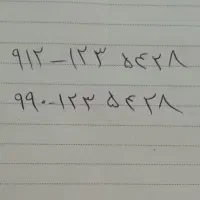 ۹۱۲-۱۲۳ ۵۴۲۸
۹۹۰-۱۲۳ ۵۴۲۸